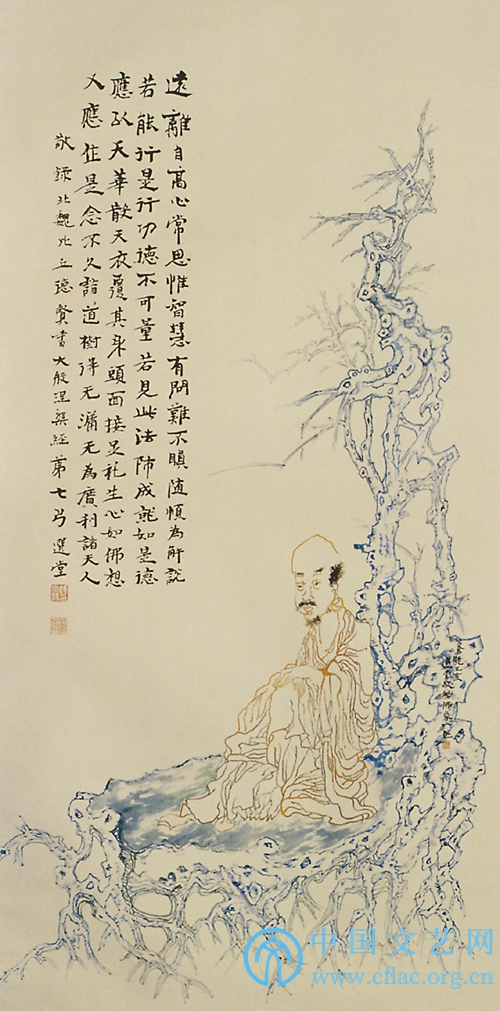 遠離自高心常思惟智慧有問難不瞋随順為解說
若能行是行功德不可量若見此法師成就如是德
應以天華散天衣覆其身頭面接足礼生心如佛想
又應住是念不久詣道樹得无漏无為廣利諸天人
敬錄北魏比丘德賢書大般涅槃經第七弓選堂
中国文艺网
www.cflac.org.cn